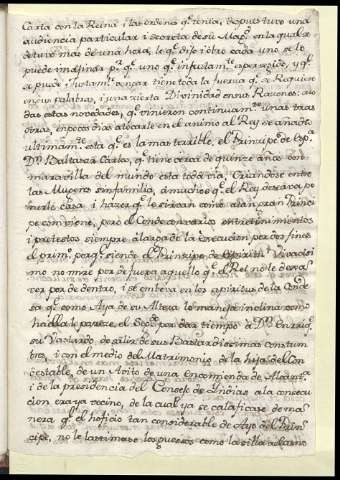 Carta con la Reina i las ordenes qᵉ tenia, despues tuvo una
audiencia particular i secreta de su Magᵈ en la qual se
detuvo mas de una hora, lo qᵉ dijo i obro cada uno se lo
puede imaginar pʳ qᵉ uno qᵉ injustamᵗᵉ a perseguido, y qᵉ
a pues injustamᵗᵉ tiene toda la fuerza qᵉ se Requiere
en sus palabras, i una cierta Divinidad en sus Razones: a to
das estas novedades, qᵉ vinieron continuamᵗᵉ unas tras
otras, en pocos dias a tocarle en el animo al Rey se añadio
ultimamᵗᵉ esta qᵉ es la mas terrible, el Principe de Espᵃ
Dⁿ Baltasar Carlos, qᵉ tiene cerca de quince años con
maravilla del mundo esta todavia, Criandose entre
las Mugeres sin familia, a muchos qᵉ el Rey deseava po
nerle casa i hazer qᵉ le sirvan como a tan gran Princi
pe conviene, pero el Conde con varios entretenimientos
i pretestos siempre alargava la execucion por dos fines
el primᵒ porqᵉ siendo el Principe de Espiritu Vivacisi
mo no mire por de fuera aquello qᵉ el Rei no le dexa
ver por de dentro, i se embeva en los espiritus de la Conde
sa qᵉ como Aya de su Alteza le maneja i inclina como
ha ella le parece, el Segᵈᵒ por dar tiempo a Dⁿ Enrriqᵉ
su Vastardo de salir de sus Bastardissimas costum
bres, i con el medio del Matrimonio de la hija del Con
destable, de un Avito de una encomienda de Alcantᵃ
i de la presidencia del Consejo de Yndias a la consecu
cion era ya vecino, de la cual ya se calificase de ma
nera qᵉ el hoficio tan considerable de Ayo del Prin
cipe, no le lastimase los guesos como la silla al asno